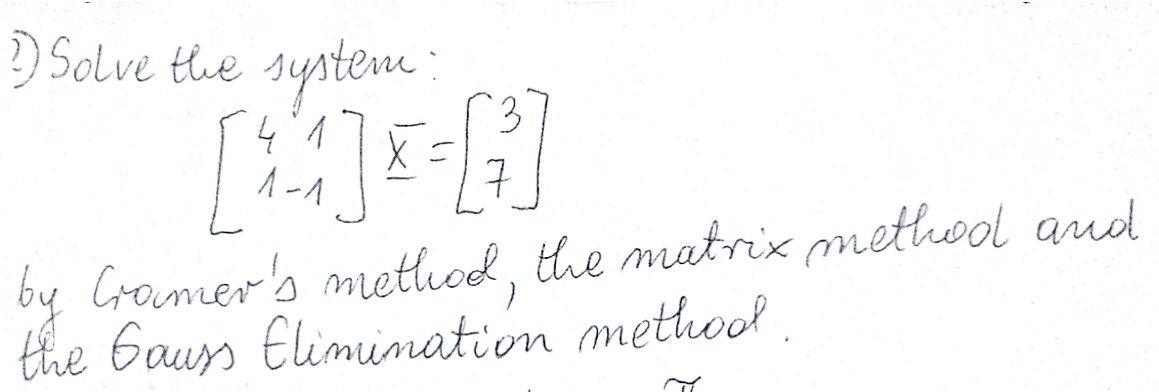 2) Solve the system:
[4 1
1 -1] X = [3
7]
by Cramer's method, the matrix method and
the Gauss Elimination method.